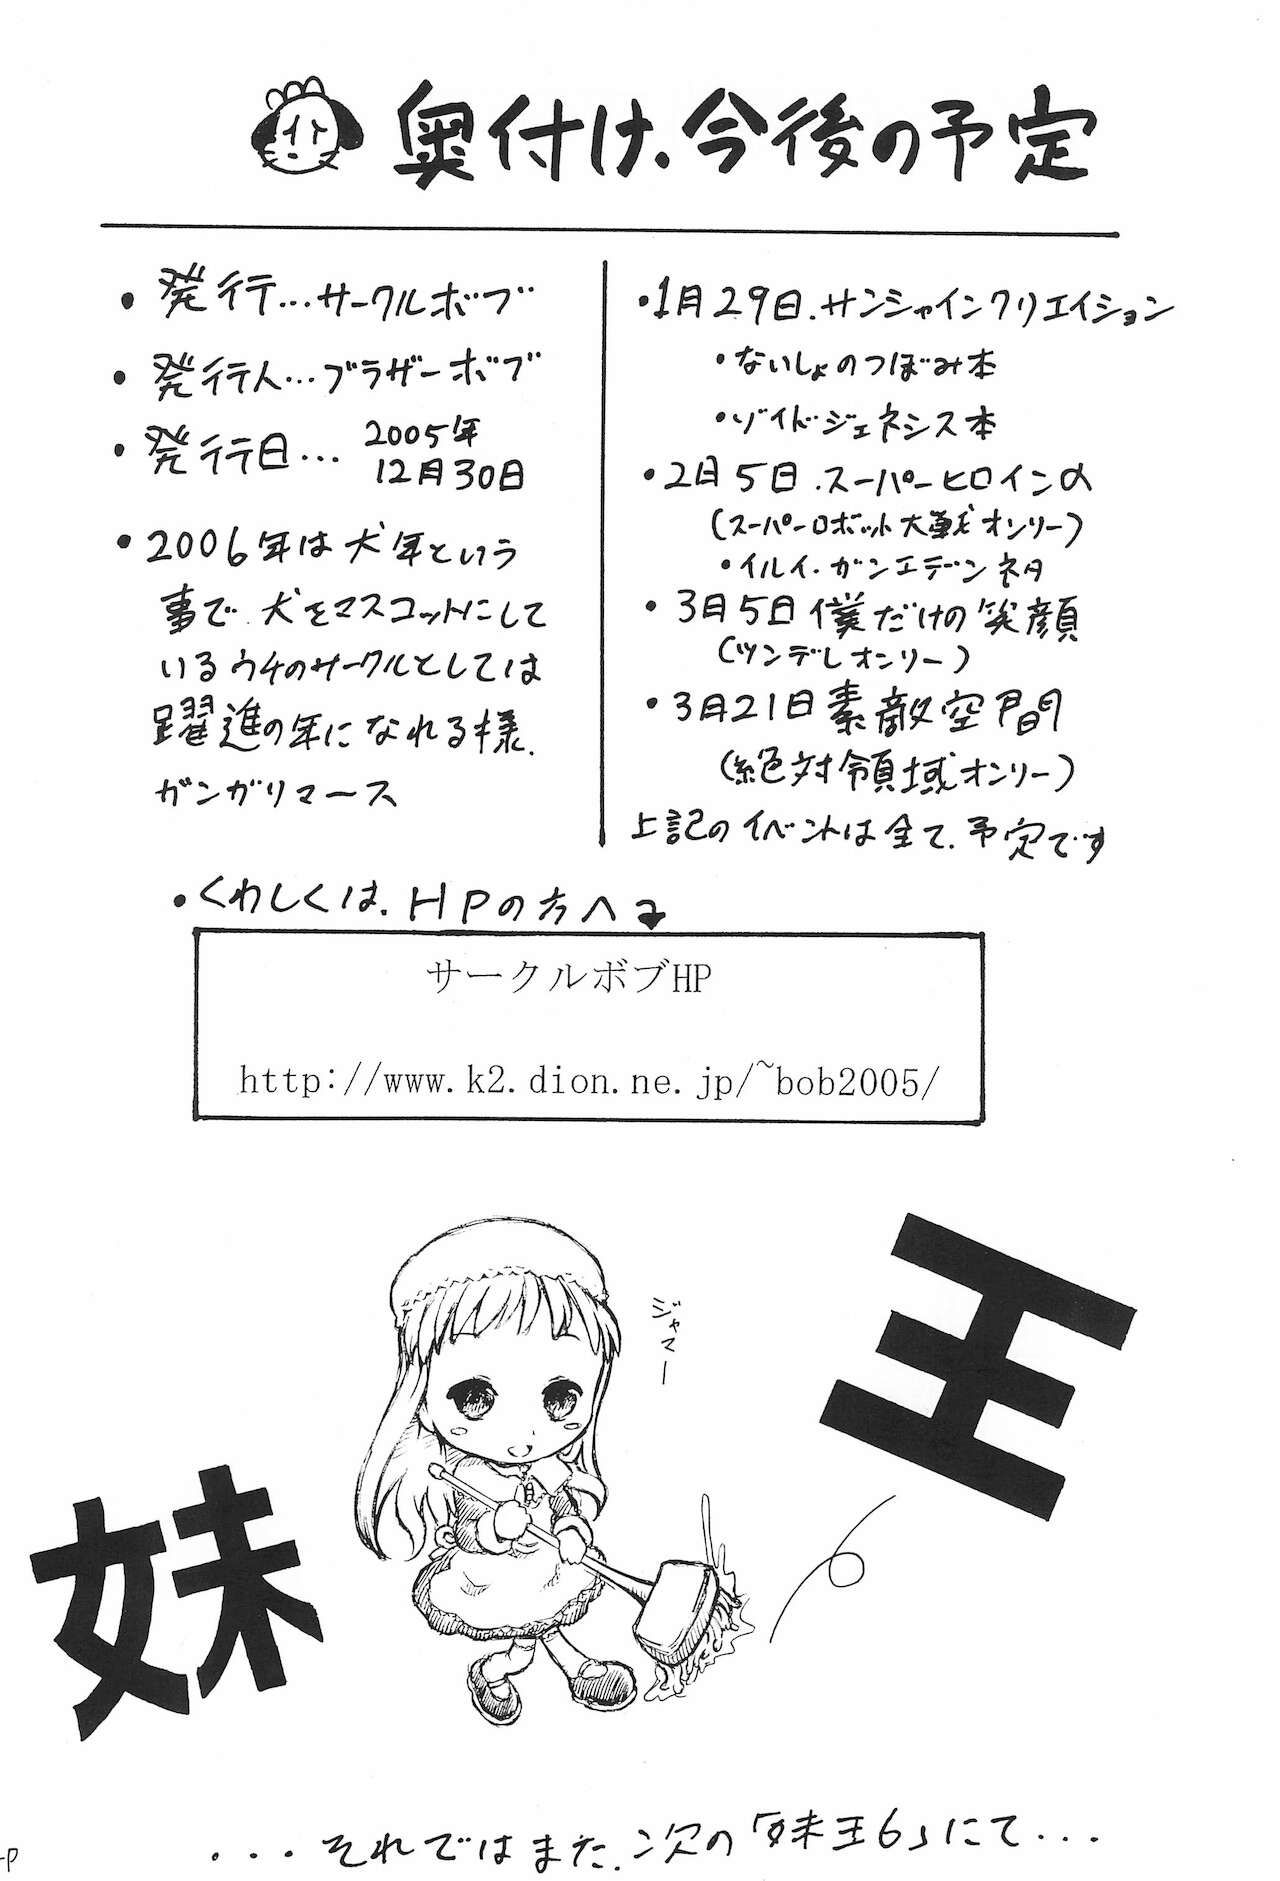 奥付け、今後の予定
・発行…サークルボブ
・発行人…ブラザーボブ
・発行日… 2005年
12月30日
・2006年は犬年という
事で、犬をマスコットにして
いるウチのサークルとしては
躍進の年になれる様、
ガンガリマース
・1月29日、サンシャインクリエイション
・ないしょのつぼみ本
・ゾイドジェネシス本
・2月5日、スーパーヒロインα
(スーパーロボット大戦オンリー)
・イルイ・ガンエデンネタ
・3月5日 僕だけの笑顔
(ツンデレオンリー)
・3月21日 素敵空間
(絶対領域オンリー)
上記のイベントは全て、予定です
・くわしくは、HPの方へ
サークルボブHP
http://www.k2.dion.ne.jp/~bob2005/
ジャマー
王
妹
・・・それではまた、次の「妹王6」にて・・・